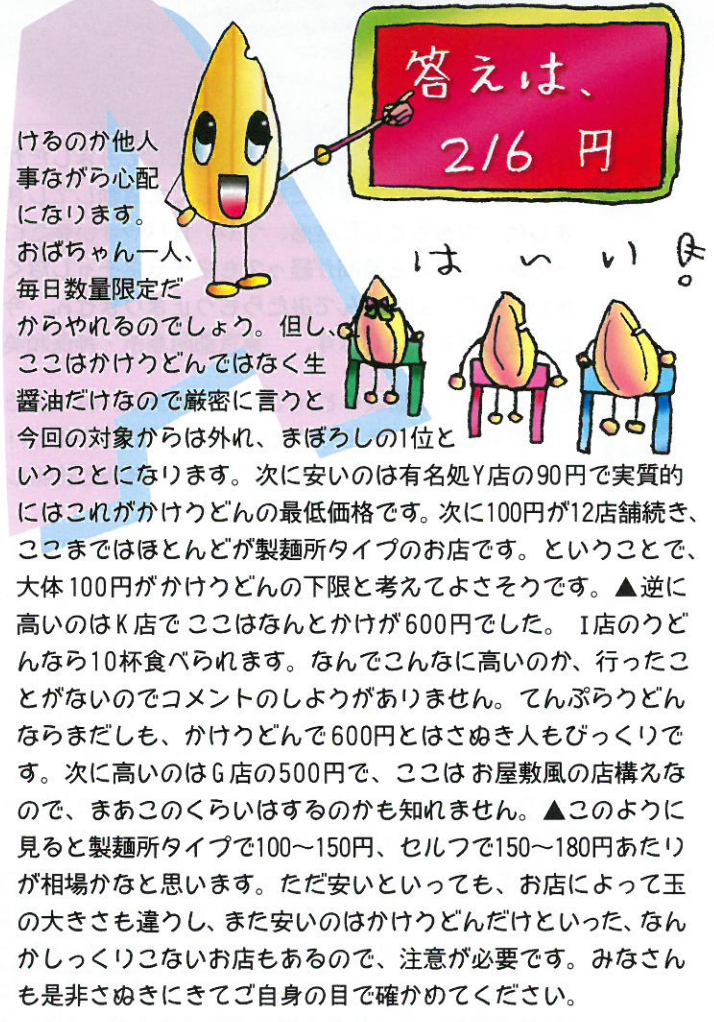 答えは、
216 円
はいい!
けるのか他人
事ながら心配
になります。
おばちゃん一人、
毎日数量限定だ
からやれるのでしょう。但し、
ここはかけうどんではなく生
醤油だけなので厳密に言うと
今回の対象からは外れ、まぼろしの1位と
いうことになります。次に安いのは有名処Y店の90円で実質的
にはこれがかけうどんの最低価格です。次に100円が12店舗続き、
ここまではほとんどが製麺所タイプのお店です。ということで、
大体100円がかけうどんの下限と考えてよさそうです。▲逆に
高いのはK店でここはなんとかけが600円でした。I店のうど
んなら10杯食べられます。なんでこんなに高いのか、行ったこ
とがないのでコメントのしようがありません。てんぷらうどん
ならまだしも、かけうどんで600円とはさぬき人もびっくりで
す。次に高いのはG店の500円で、ここはお屋敷風の店構えな
ので、まあこのくらいはするのかも知れません。▲このように
見ると製麺所タイプで100〜150円、セルフで150〜180円あたり
が相場かなと思います。ただ安いといっても、お店によって玉
の大きさも違うし、また安いのはかけうどんだけといった、なん
かしっくりこないお店もあるので、注意が必要です。みなさん
も是非さぬきにきてご自身の目で確かめてください。